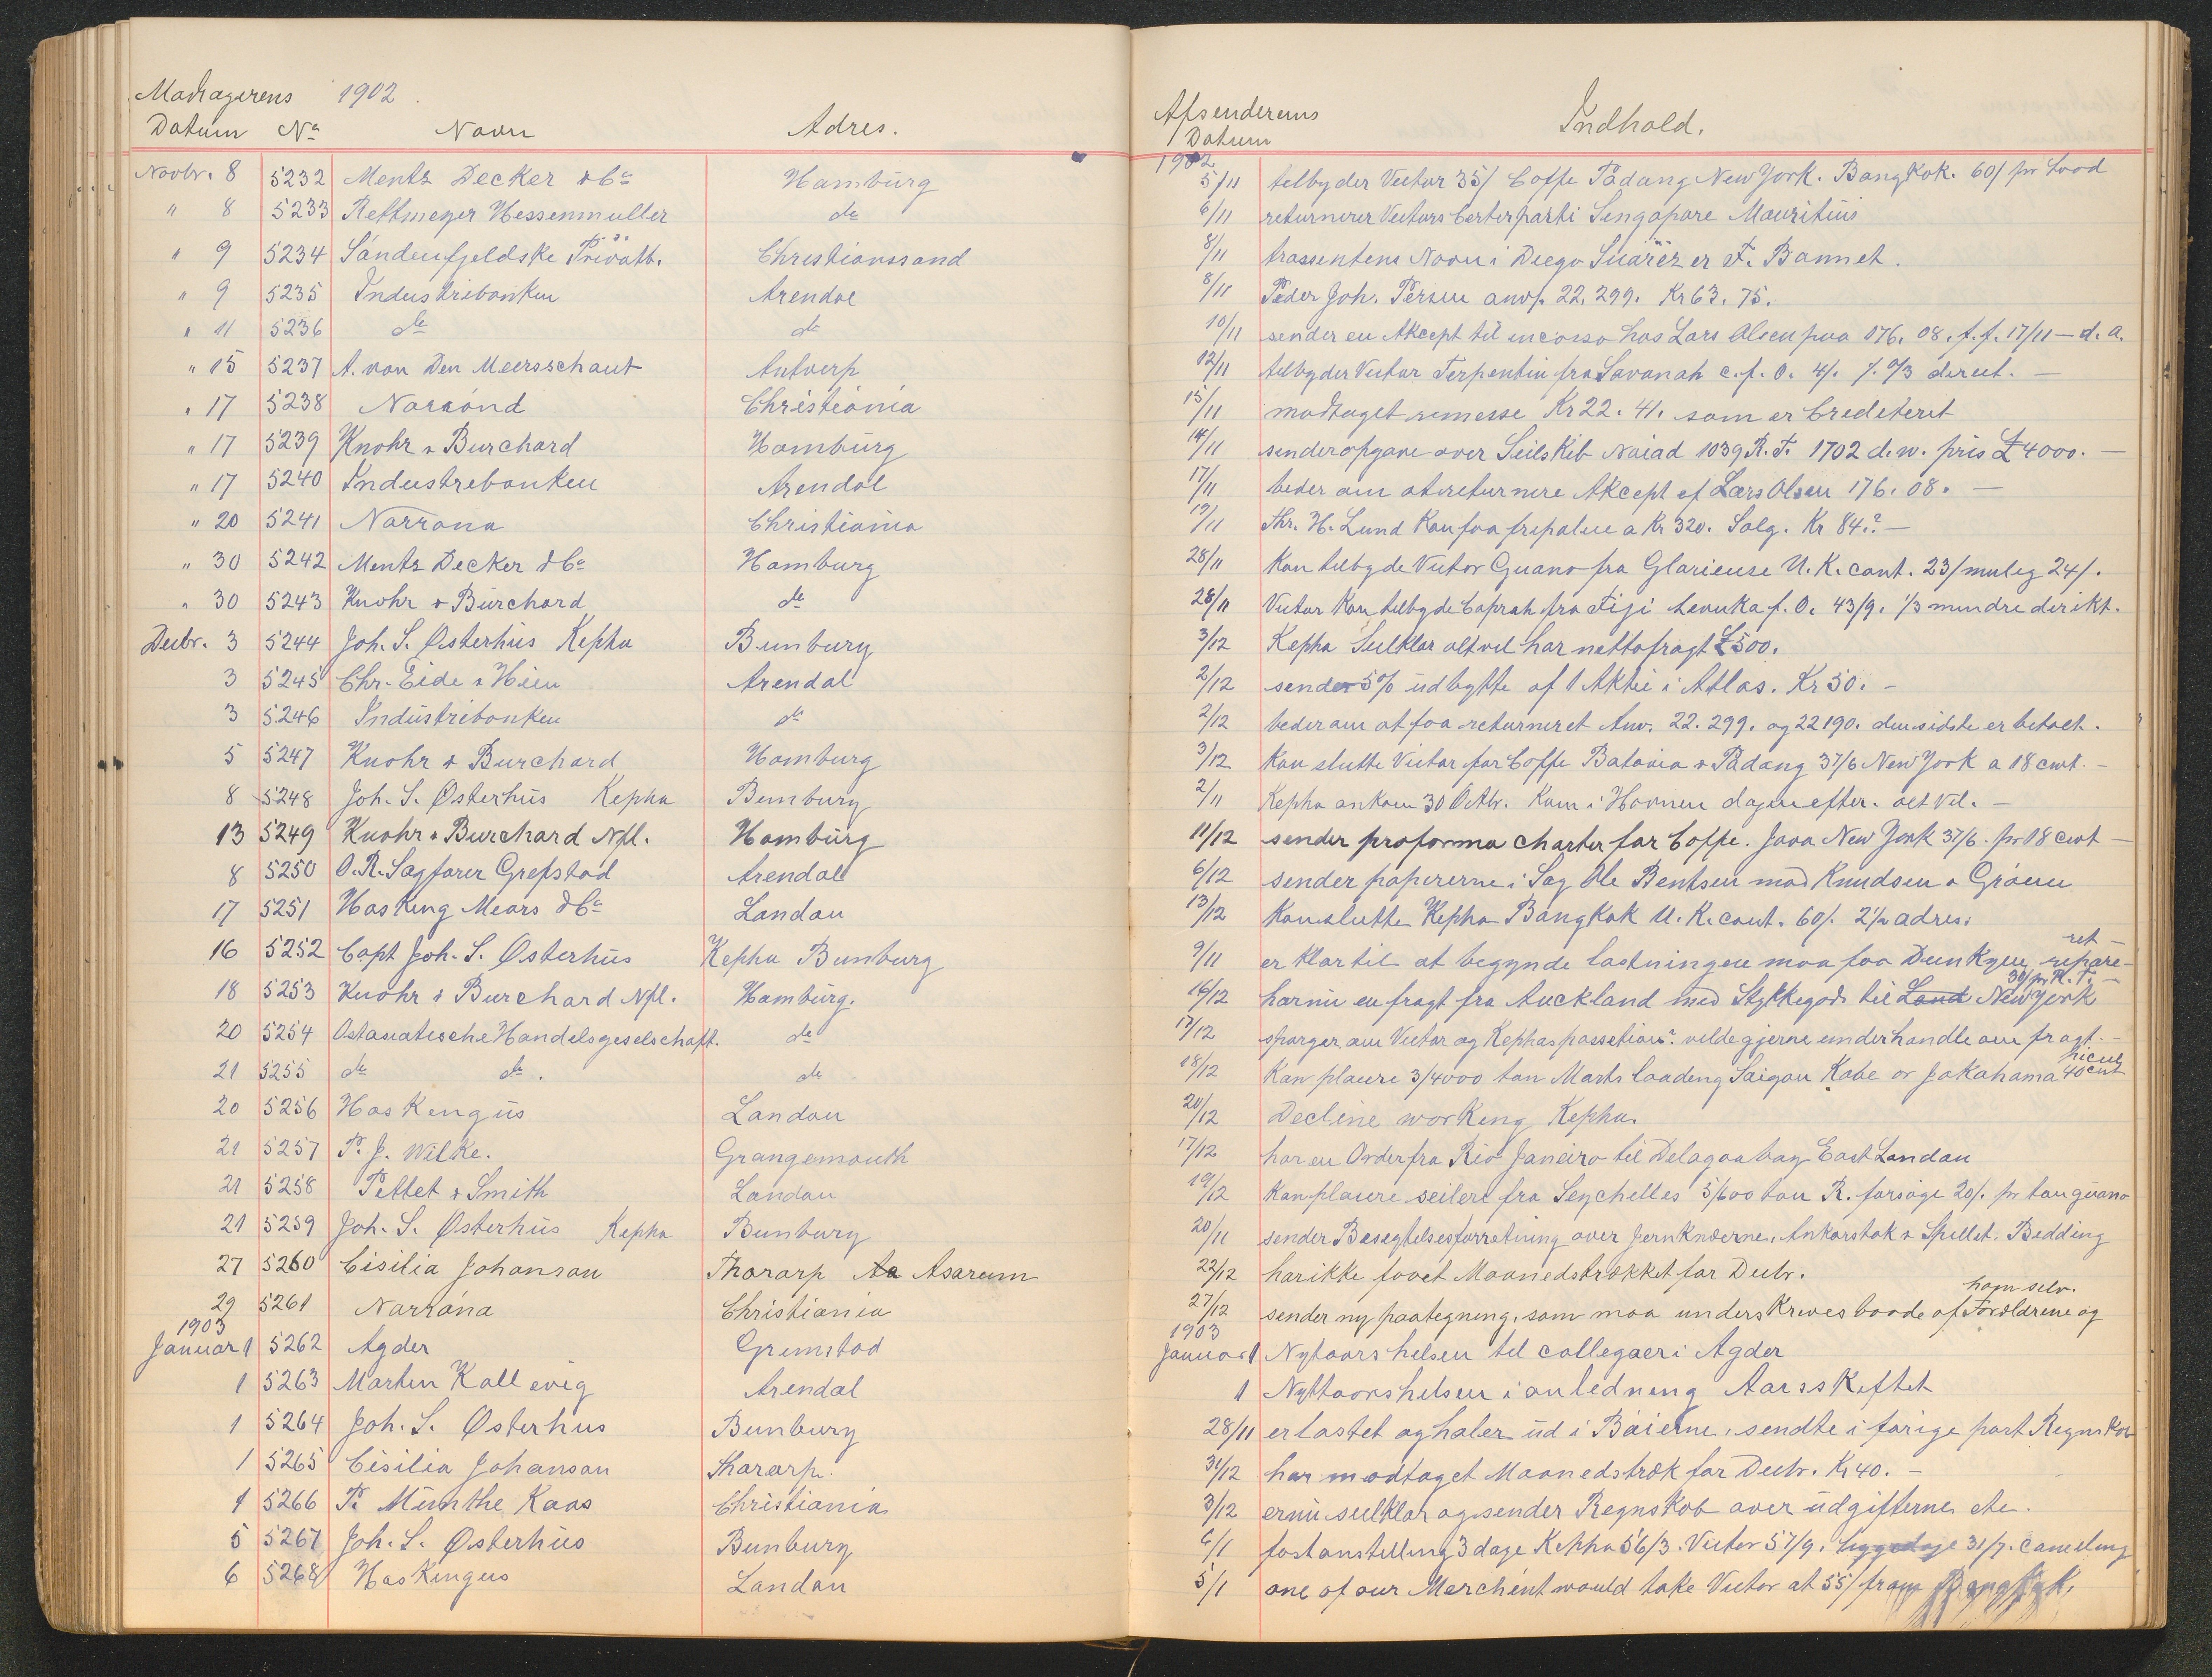 Modtagerens 1902.
Datum No Navn Adres.
Novbr. 8 5232 Mentz Decker & Co Hamburg
" 8 5233 Rettmeyer Hessenmuller do
" 9 5234 Söndenfjeldske Privatb. Christianssand
" 9 5235 Industribanken Arendal
" 11 5236 do do
" 15 5237 A. von Den Meersschaut Antverp
" 17 5238 Norröna Christiania
" 17 5239 Knohr & Burchard Hamburg
" 17 5240 Industribanken Arendal
" 20 5241 Norröna Christiania
" 30 5242 Mentz Decker & Co Hamburg
" 30 5243 Knohr & Burchard do
Decbr. 3 5244 Joh. S. Østerhus Kepha Bunbury
3 5245 Chr. Eide & Hieu Arendal
3 5246 Industribanken do
5 5247 Knohr & Burchard Hamburg
8 5248 Joh. S. Østerhus Kepha Bunbury
13 5249 Knohr & Burchard Nfl. Hamburg
8 5250 O.R. Sagfører Grefstad Arendal
17 5251 Hasking Mears & Co London
16 5252 Capt Joh. S. Østerhus Kepha Bunbury
18 5253 Knohr & Burchard Nfl. Hamburg.
20 5254 Ostasiatische Handelsgeselschaft. do
21 5255 do do. do
20 5256 Haskengus London
21 5257 P. J. Wilke. Grangemouth
21 5258 Pettet & Smith London
21 5259 Joh. S. Østerhus Kepha Bunbury
27 5260 Cisilia Johanson Thorarp Aa Asarum
29 5261 Norröna Christiania
1903
Januar 1 5262 Agder Grimstad
1 5263 Marten Kallevig Arendal
1 5264 Joh. S. Østerhus Bunbury
1 5265 Cisilia Johanson Thorarp.
1 5266 P. Munthe Kaas Christiania
5 5267 Joh. S. Østerhus Bunbury
6 5268 Haskengus London
Afsenderens
Datum Indhold.
1902
5/11 telbyder Victor 35/ Coffe Padang New York. Bangkok. 60/ pr Lood
6/11 returnerer Victors Certeparti Singapore Mauritius
8/11 trassentens Navn i Diego Suarez er F. Bannet.
8/11 Peder Joh. Persen anvp. 22,299. Kr 63. 75.
10/11 sender en Akcept til incasso hos Lars Olsen paa 176. 08. f.f. 17/11 – d. a.
12/11 telbyder Victor Terpentin fra Savanah c.f. O. 4/. /. 0/3 direct. –
15/11 modtaget rimesse Kr 22. 41. som er Crediteret
14/11 sender opgave over Seilskib Naiad 1039 R.T. 1702 d.w. pris £4000. –
17/11 beder om at returnere Akcept af Lars Olsen 176. 08. –
19/11 Thr. H. Lund kan faa fripalue a Kr 320. Solg. Kr 84.? –
28/11 Kan telbyde Victor Guano fra Glorieuse U.K. cont. 23/ mulig 24/.
28/11 Victor kan telbyde Coprah fra Fiji Levuka f. O. 43/9. 1/3 mindre direkt.
3/12 Kepha Seilklar alt vel har nettofragt £500.
2/12 sender 5% udbytte af 1 Aktie i Atlas. Kr 50. –
2/12 beder om at faa returneret Anv. 22.299. og 22190. den sidste er betalt.
3/12 Kan slutte Victor for Coffe Batavia & Padang 37/6 New York a 18 cwt. –
2/11 Kepha ankom 30 Octbr. kom i Havnen dagen efter. alt vel. –
11/12 sender proforma charter for Coffe. Java New York 37/6. pr 18 cwt –
6/12 sender papirerne i Sag Ole Bentsen mod Knudsen & Gröeen
13/12 Kan slutte Kepha Bangkok U.K. cont. 60/. 2½ adres.
9/11 er klar til at begynde lastningen maa faa Dunkyen repare-
ret –
16/12 har nu en fragt fra Auckland med Stykkegods til Lond New York
30/ pr R.T. –
17/12 spørger om Victor og Kephas possetion? vilde gjerne underhandle om fragt. –
18/12 Kan placere 3/4000 ton Marts loading Saigon Kobe or Jokahama 40 cent
20/12 Decline working Kepha.
17/12 har en Order fra Rio Janeiro til Delagoa bay East London
19/12 Kan placere seilere fra Seychelles 5/600 ton R. forsøge 20/. pr ton guano
20/11 sender Besegtelsesforretning over Jernknæerne, Ankorstok & Spillet. Bedding
22/12 har ikke faaet Maanedstrækket for Decbr.
27/12 sender ny paategning, som maa underskrives baade af Forældrene og
ham selv.
1903
Januar 1 Nytaarshelsen til collegaer i Agder
1 Nyttaarshelsen i anledning Aarsskeftet
28/11 er lastet og haler ud i Baierne, sendte i forige post Regnskab
31/12 har modtaget Maanedstræk for Decbr. Kr 40. –
3/12 er nu seilklar og sender Regnskab over udgifterne etc.
6/1 fast anstelling 3 dage Kepha 56/3. Victor 57/9. liggedage 31/7. canceling
5/1 one of our Merchent would take Victor at 55/ from Bangkok.